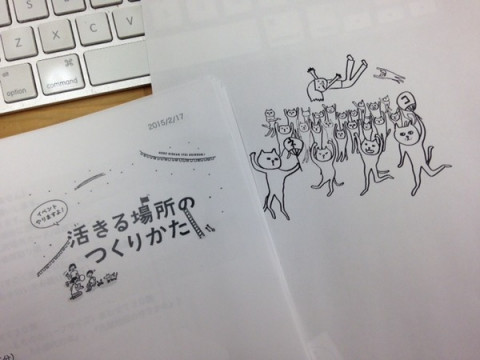 Z
X
C
V
option
command
⌘
2015/2/17
イベント
やりますよ!
活きる場所の
つくりかた